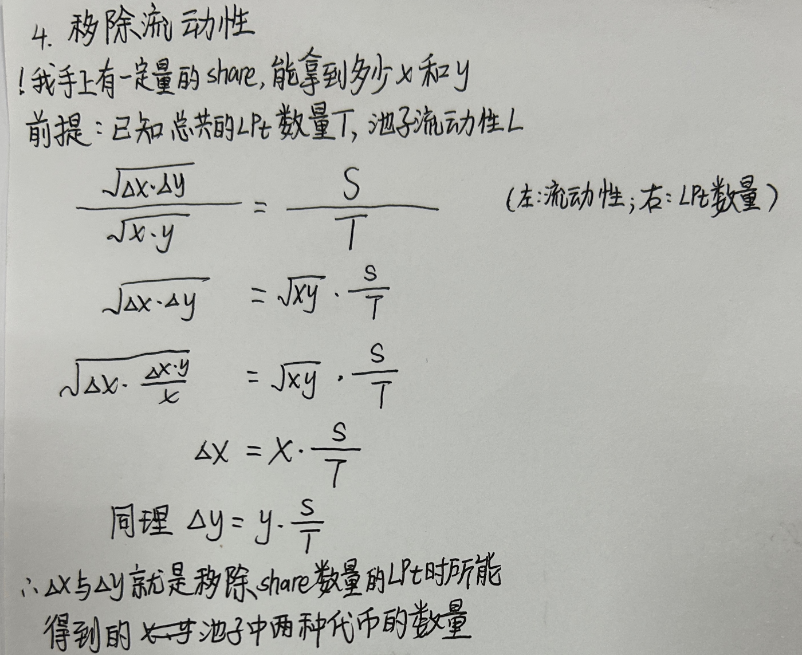 4. 移除流动性
! 我手上有一定量的 share, 能拿到多少 x 和 y
前提：已知总共的LPt 数量T, 池子流动性L
√(Δx·Δy) / √(x·y) = S / T (左:流动性；右：LPt数量)
√(Δx·Δy) = √(xy) · S/T
√(Δx · (Δx·y)/x) = √(xy) · S/T
Δx = x · S/T
同理 Δy = y · S/T
∴ Δx与Δy 就是移除share数量的LPt时所能
得到的 池子中两种代币的数量